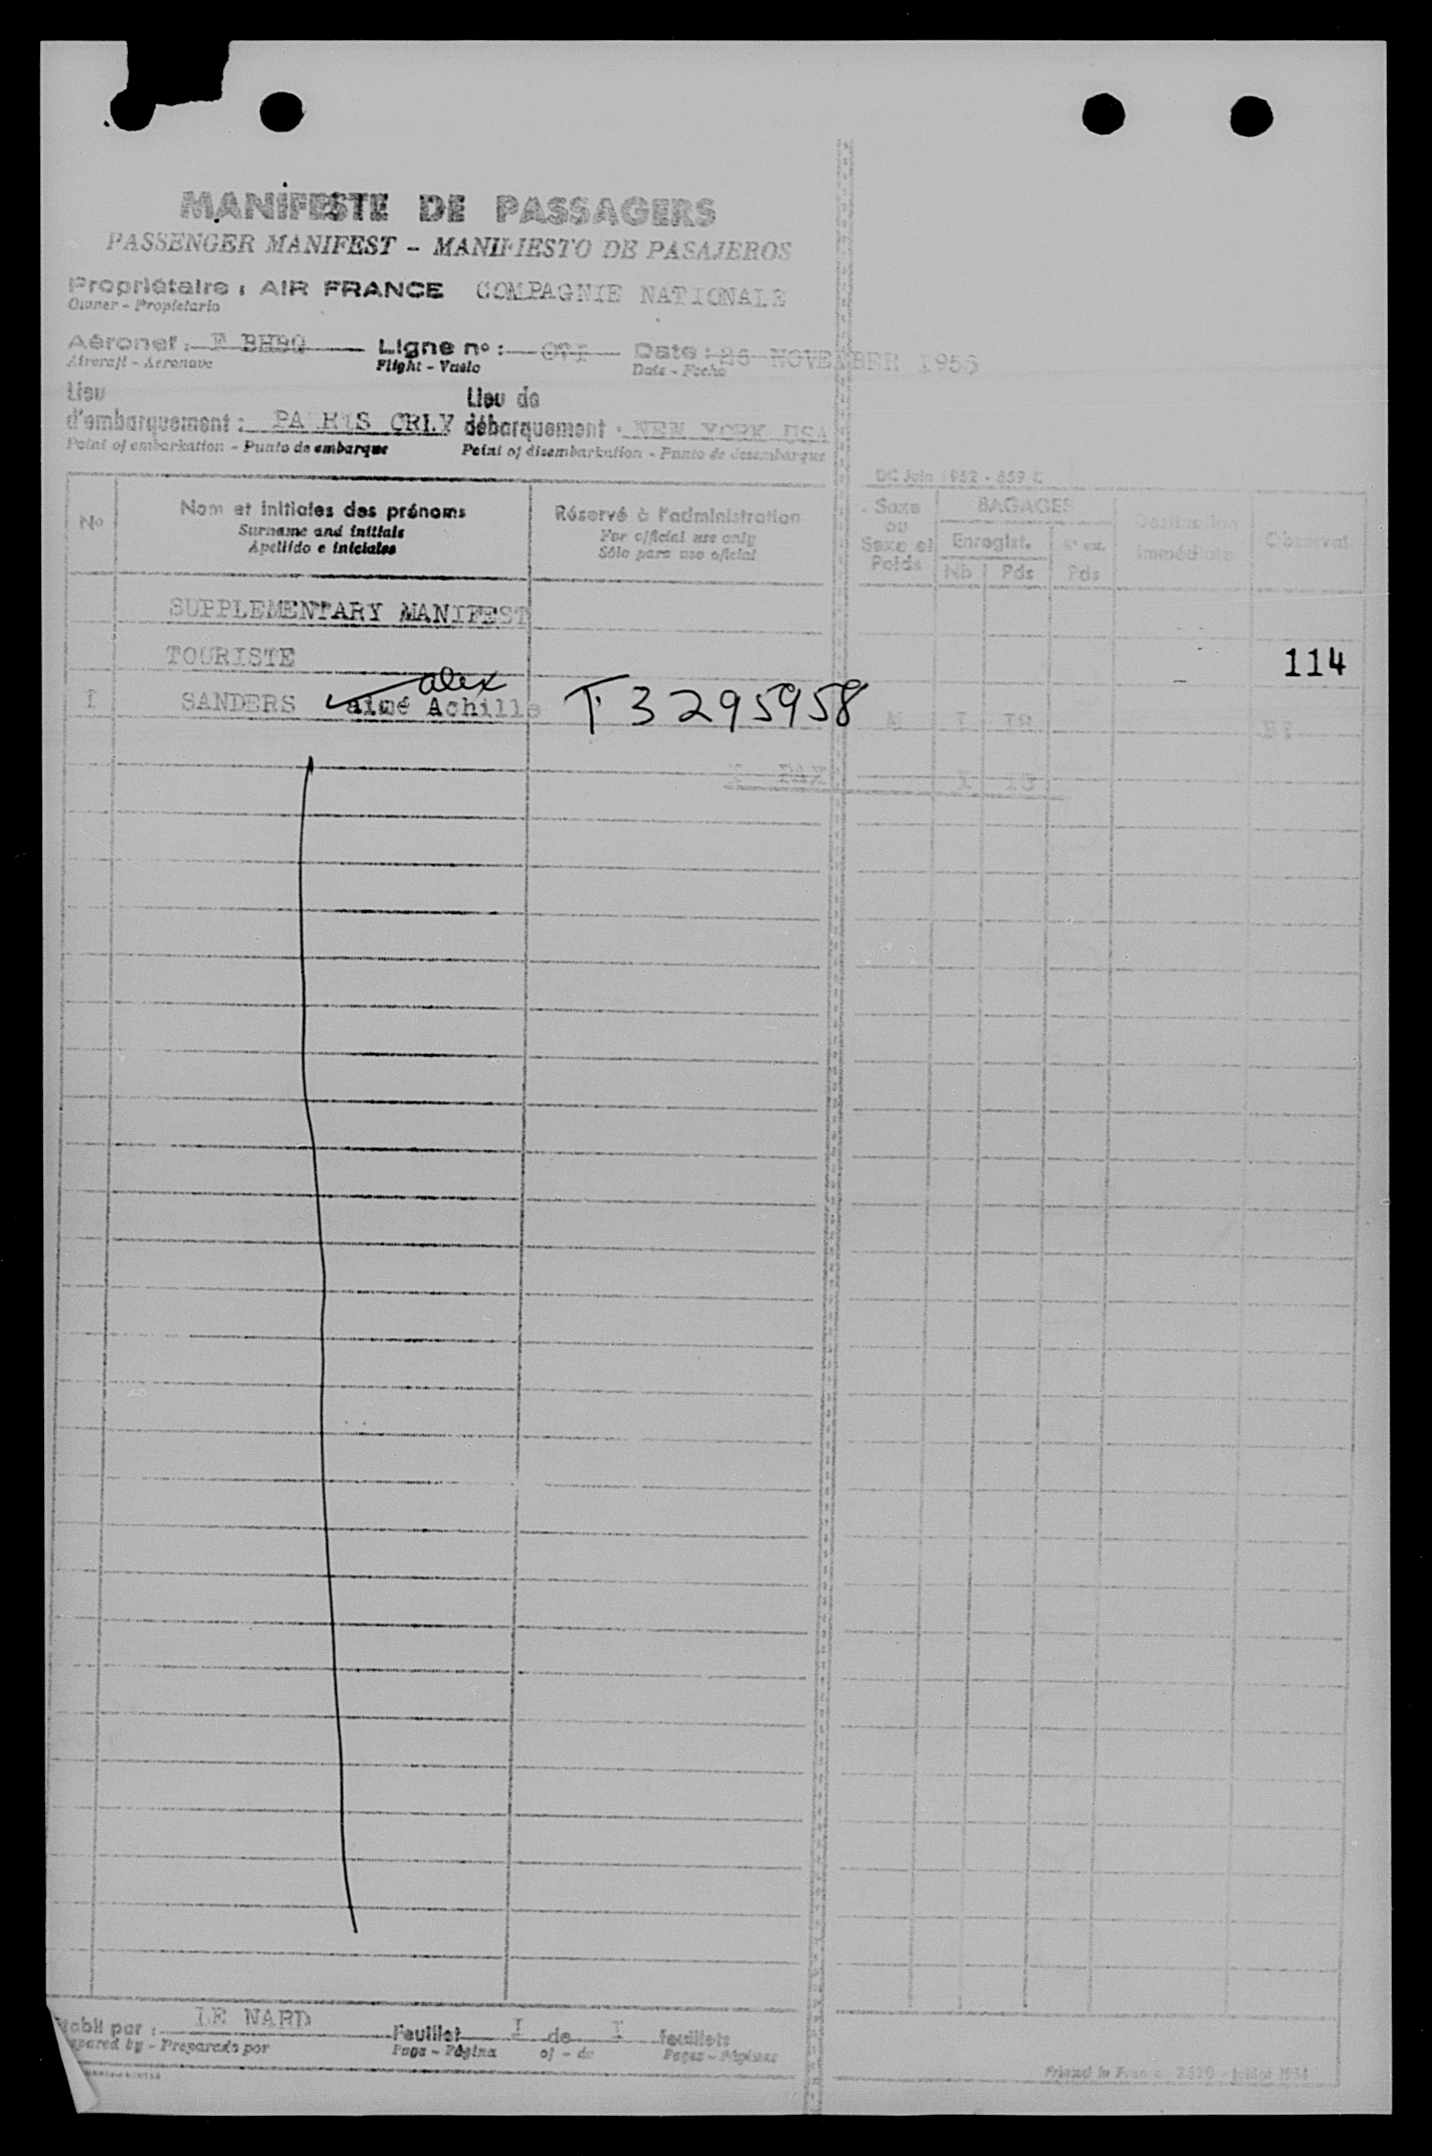 MANIFESTE DE PASSAGERS
PASSENGER MANIFEST - MANIFIESTO DE PASAJEROS
Propriétaire : AIR FRANCE COMPAGNIE NATIONALE
Owner - Propietario
Aéronef : F BHBQ Ligne no : Date : 26 NOVEMBER 1956
Aircraft - Aeronave Flight - Vuelo Date - Fecha
Lieu Lieu de
d'embarquement : PARIS ORLY débarquement : NEW YORK USA
Point of embarkation - Punto de embarque Point of disembarkation - Punto de desembarque
DC Juin 1952 - 659 C
No Nom et initiales des prénoms Réservé à l'administration Sexe BAGAGES Destination Observat.
Surname and initials For official use only ou Enregist. immédiate
Apellido e iniciales Sólo para uso oficial Sexe et Poids Nb Pds Pds
SUPPLEMENTARY MANIFEST
TOURISTE 114
alex
I SANDERS aimé Achille T 3295958 M I I8
I PAX I I8
Etabli par : LE NARD Feuillet I de I feuillets
Prepared by - Preparado por Page - Página of - de Pages - Páginas
Printed in France